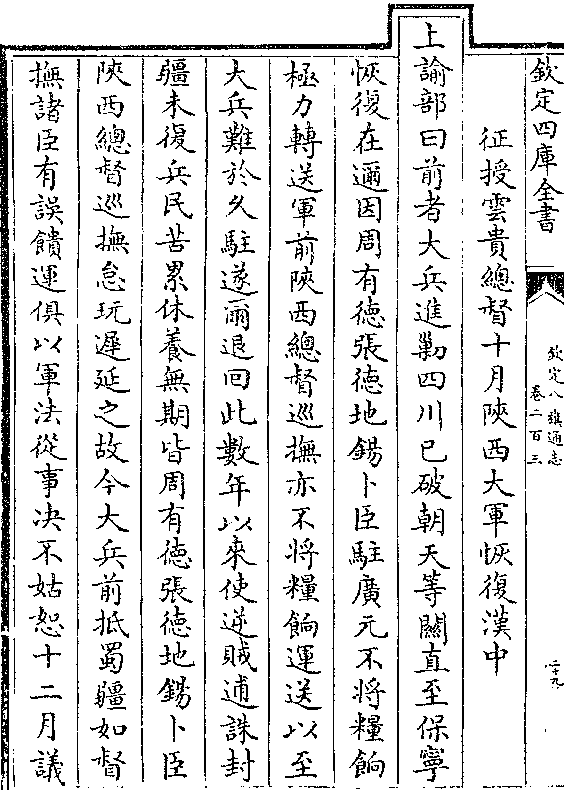 欽定四庫全書
欽定八旗通志
卷二百三
二十九
征授雲貴總督十月陝西大軍恢復漢中
上諭部曰前者大兵進勦四川已破朝天等關直至保寧
恢復在邇因周有德張德地錫卜臣駐廣元不將糧餉
極力轉送軍前陝西總督巡撫亦不將糧餉運送以至
大兵難於久駐遂爾退回此數年以來使逆賊逋誅封
疆未復兵民苦累休養無期皆周有德張德地錫卜臣
陝西總督巡撫怠玩遲延之故今大兵前抵蜀疆如督
撫諸臣有誤饋運俱以軍法從事决不姑恕十二月議